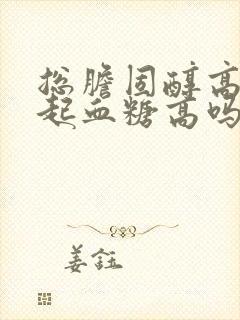 总胆固醇高
起血糖高吗
姜钰